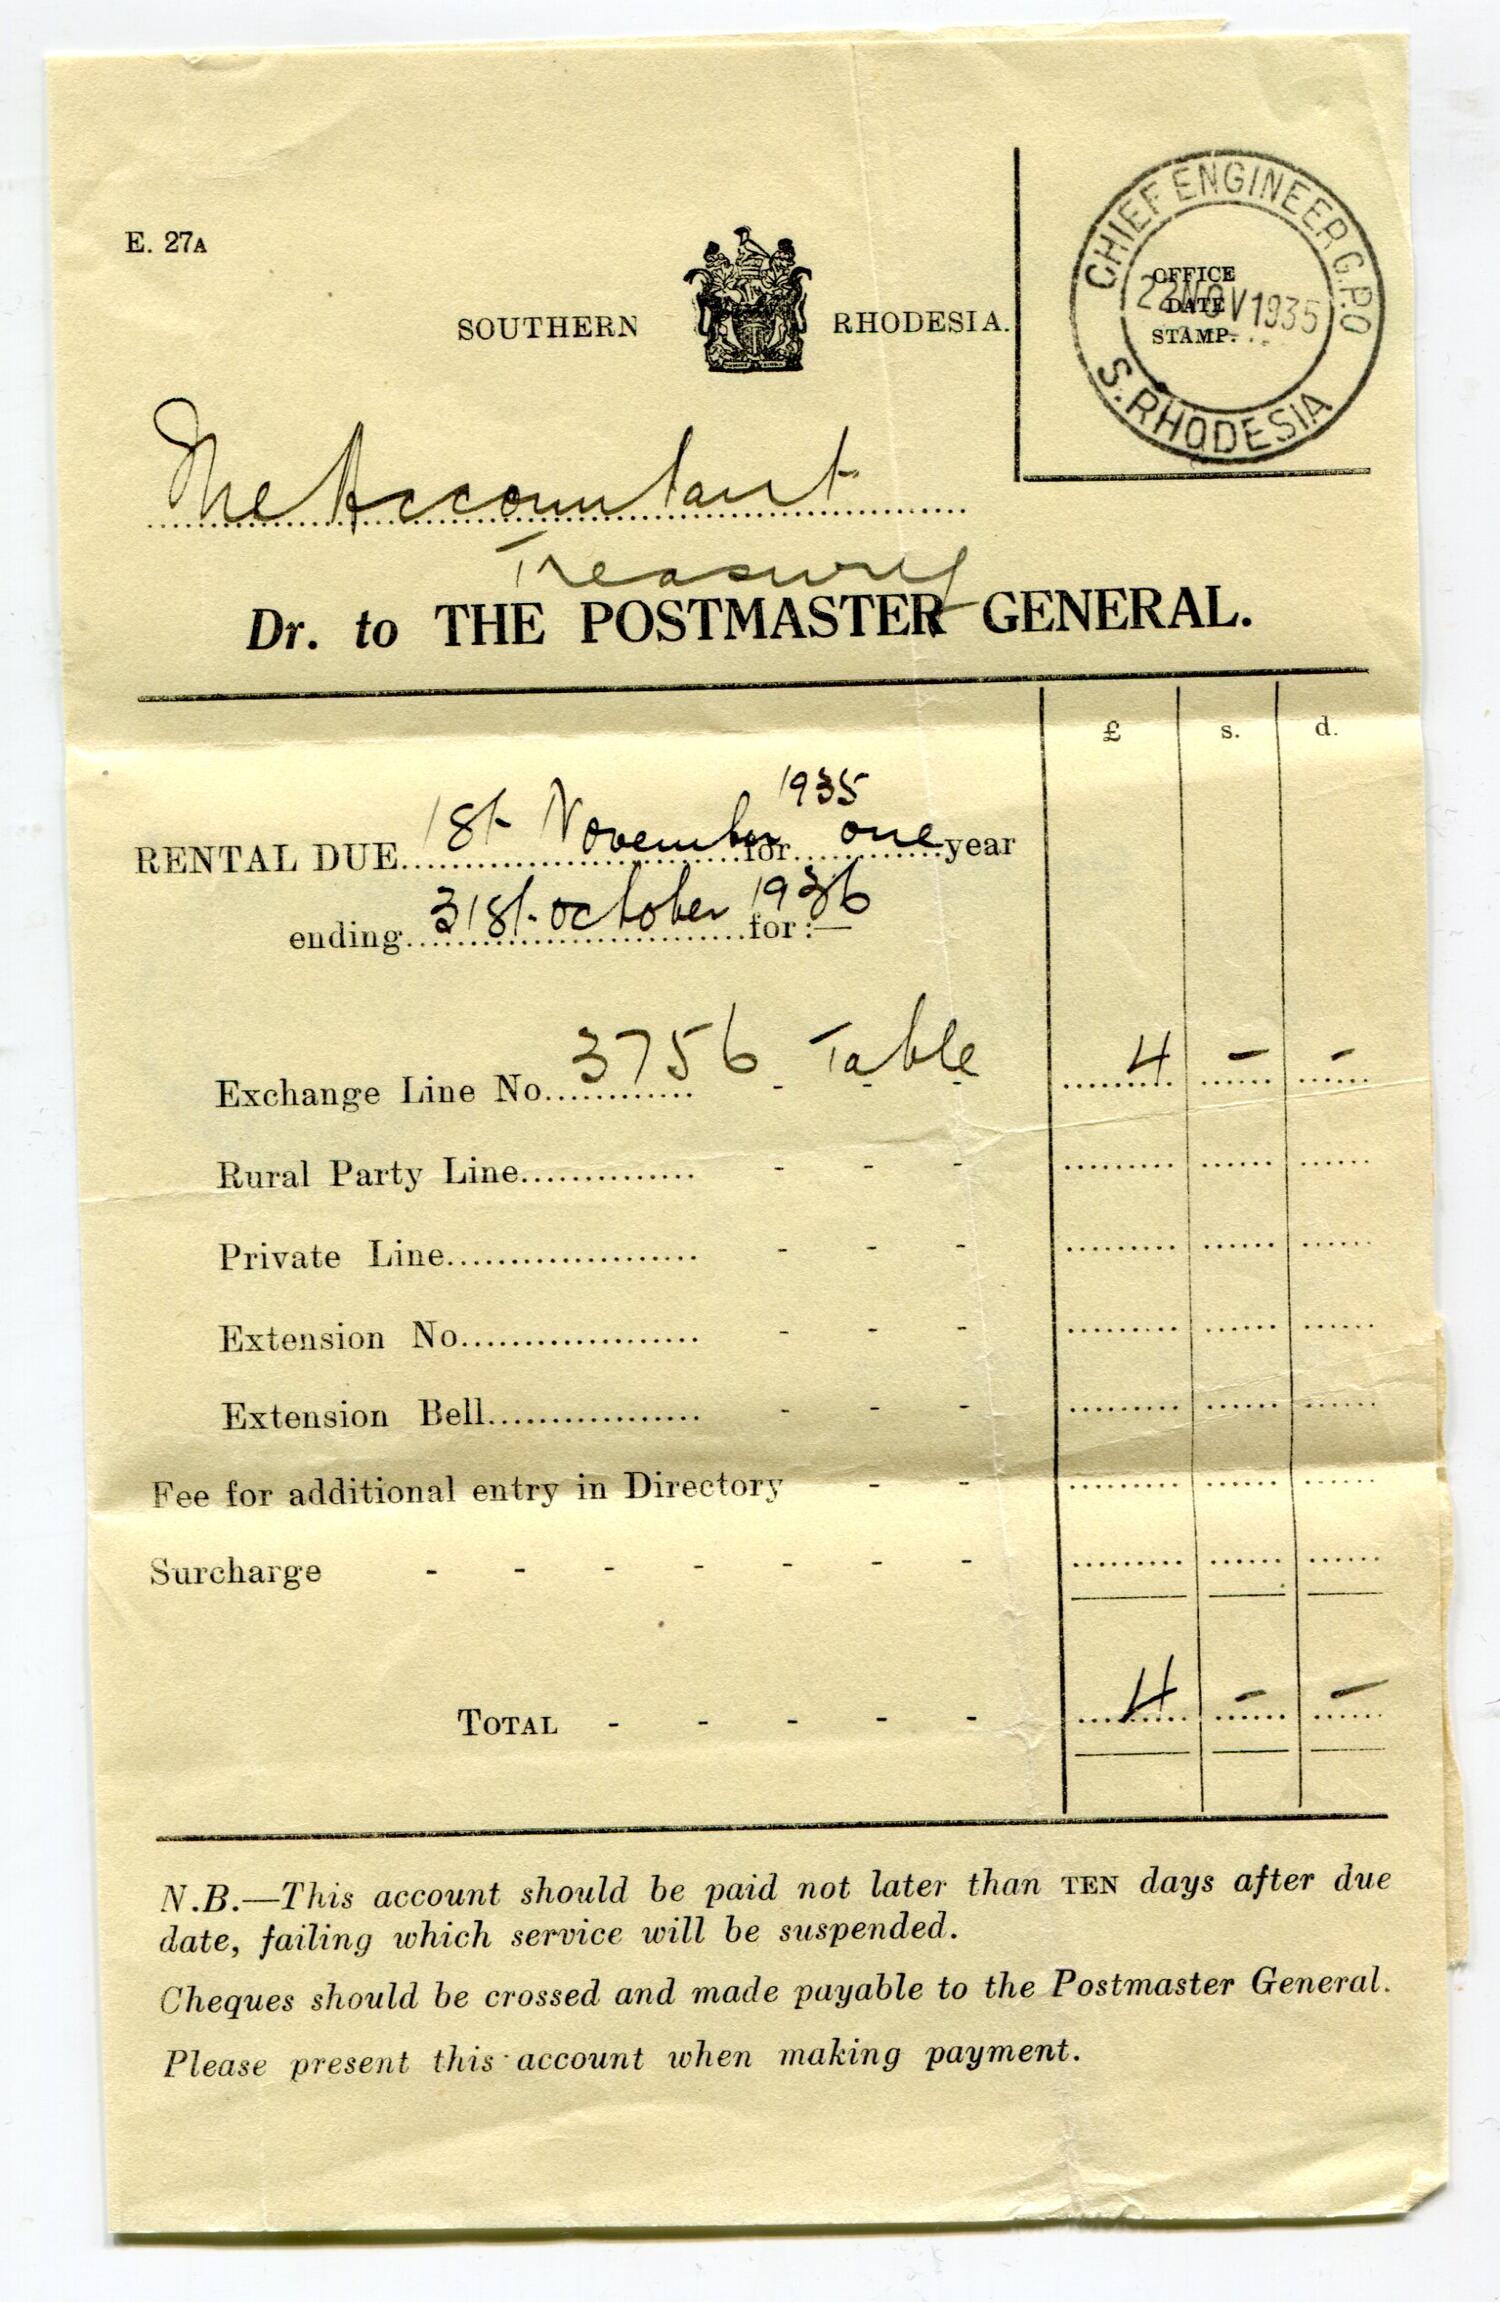 E. 27A
SOUTHERN RHODESIA.
CHIEF ENGINEER G.P.O
OFFICE
DATE
STAMP.
22 NOV 1935
S. RHODESIA
The Accountant
Treasury
Dr. to THE POSTMASTER GENERAL.
£ s. d.
1935
RENTAL DUE 1st November for one year
ending 31st October 1936 for:—
Exchange Line No. 3756 Table 4 - -
Rural Party Line - - -
Private Line - - -
Extension No. - - -
Extension Bell - - -
Fee for additional entry in Directory - -
Surcharge - - - - - - -
TOTAL - - - - - 4 - -
N.B.—This account should be paid not later than TEN days after due
date, failing which service will be suspended.
Cheques should be crossed and made payable to the Postmaster General.
Please present this account when making payment.